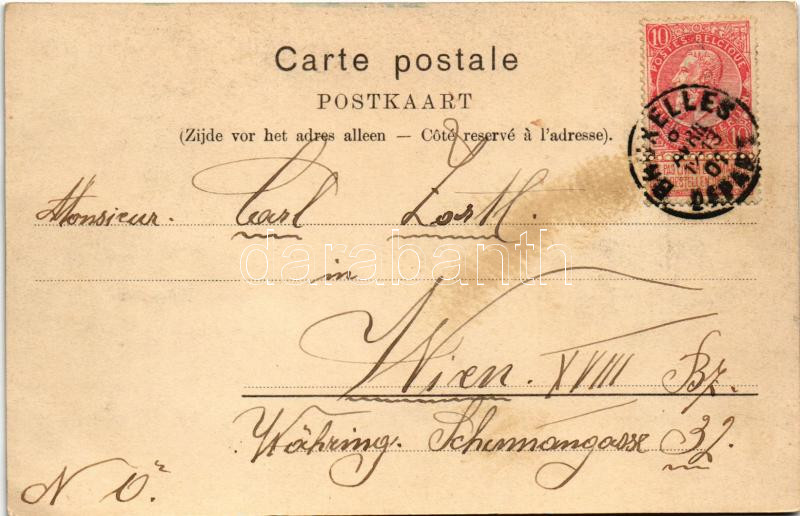 Carte postale
POSTKAART
(Zijde vor het adres alleen — Côté reservé à l'adresse).
10
POSTES BELGIQUE
BRUXELLES
6
AVRIL
01
DEPART
8
Monsieur. Carl
darabanth
in
Wien. XVIII Bz.
Währing. Schumangasse 32.
N Ö.